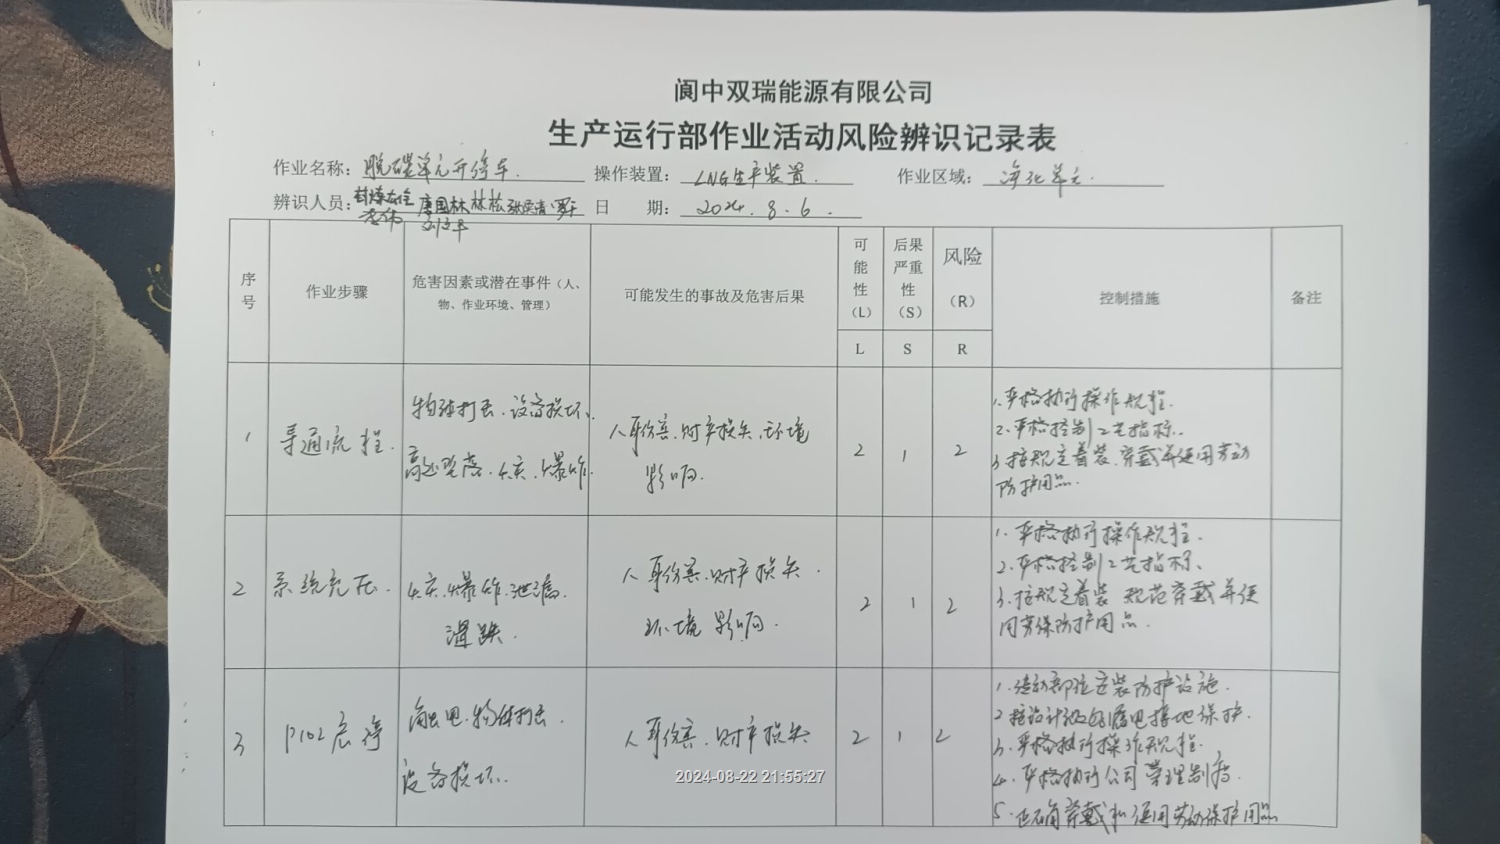 阆中双瑞能源有限公司
生产运行部作业活动风险辨识记录表
作业名称：脱碳单元开停车. 操作装置：LNG生产装置. 作业区域：净化单元.
辨识人员： 唐国林 林松 日 期：2024.8.6.
序号 作业步骤 危害因素或潜在事件（人、物、作业环境、管理） 可能发生的事故及危害后果 可能性（L） 后果严重性（S） 风险（R） 控制措施 备注
L S R
1 导通流程. 物体打击.设备损坏、
高处坠落.火灾.爆炸.
人身伤害.财产损失.环境
影响.
2 1 2
1.严格执行操作规程.
2.严格控制工艺指标.
3.按规定着装.穿戴并使用劳动
防护用品.
2 系统充压. 火灾.爆炸.泄漏.
滑跌.
人身伤害.财产损失.
环境影响.
2 1 2
1.严格执行操作规程.
2.严格控制工艺指标、
3.按规定着装 规范穿戴并使
用劳保防护用品.
3 P102启停 触电.物体打击.
设备损坏.
人身伤害.财产损失
2 1 2
1.传动部位安装防护设施.
2.按设计做好漏电接地保护.
3.严格执行操作规程.
4.严格执行公司管理制度.
5.正确穿戴和使用劳动保护用品
2024-08-22 21:55:27